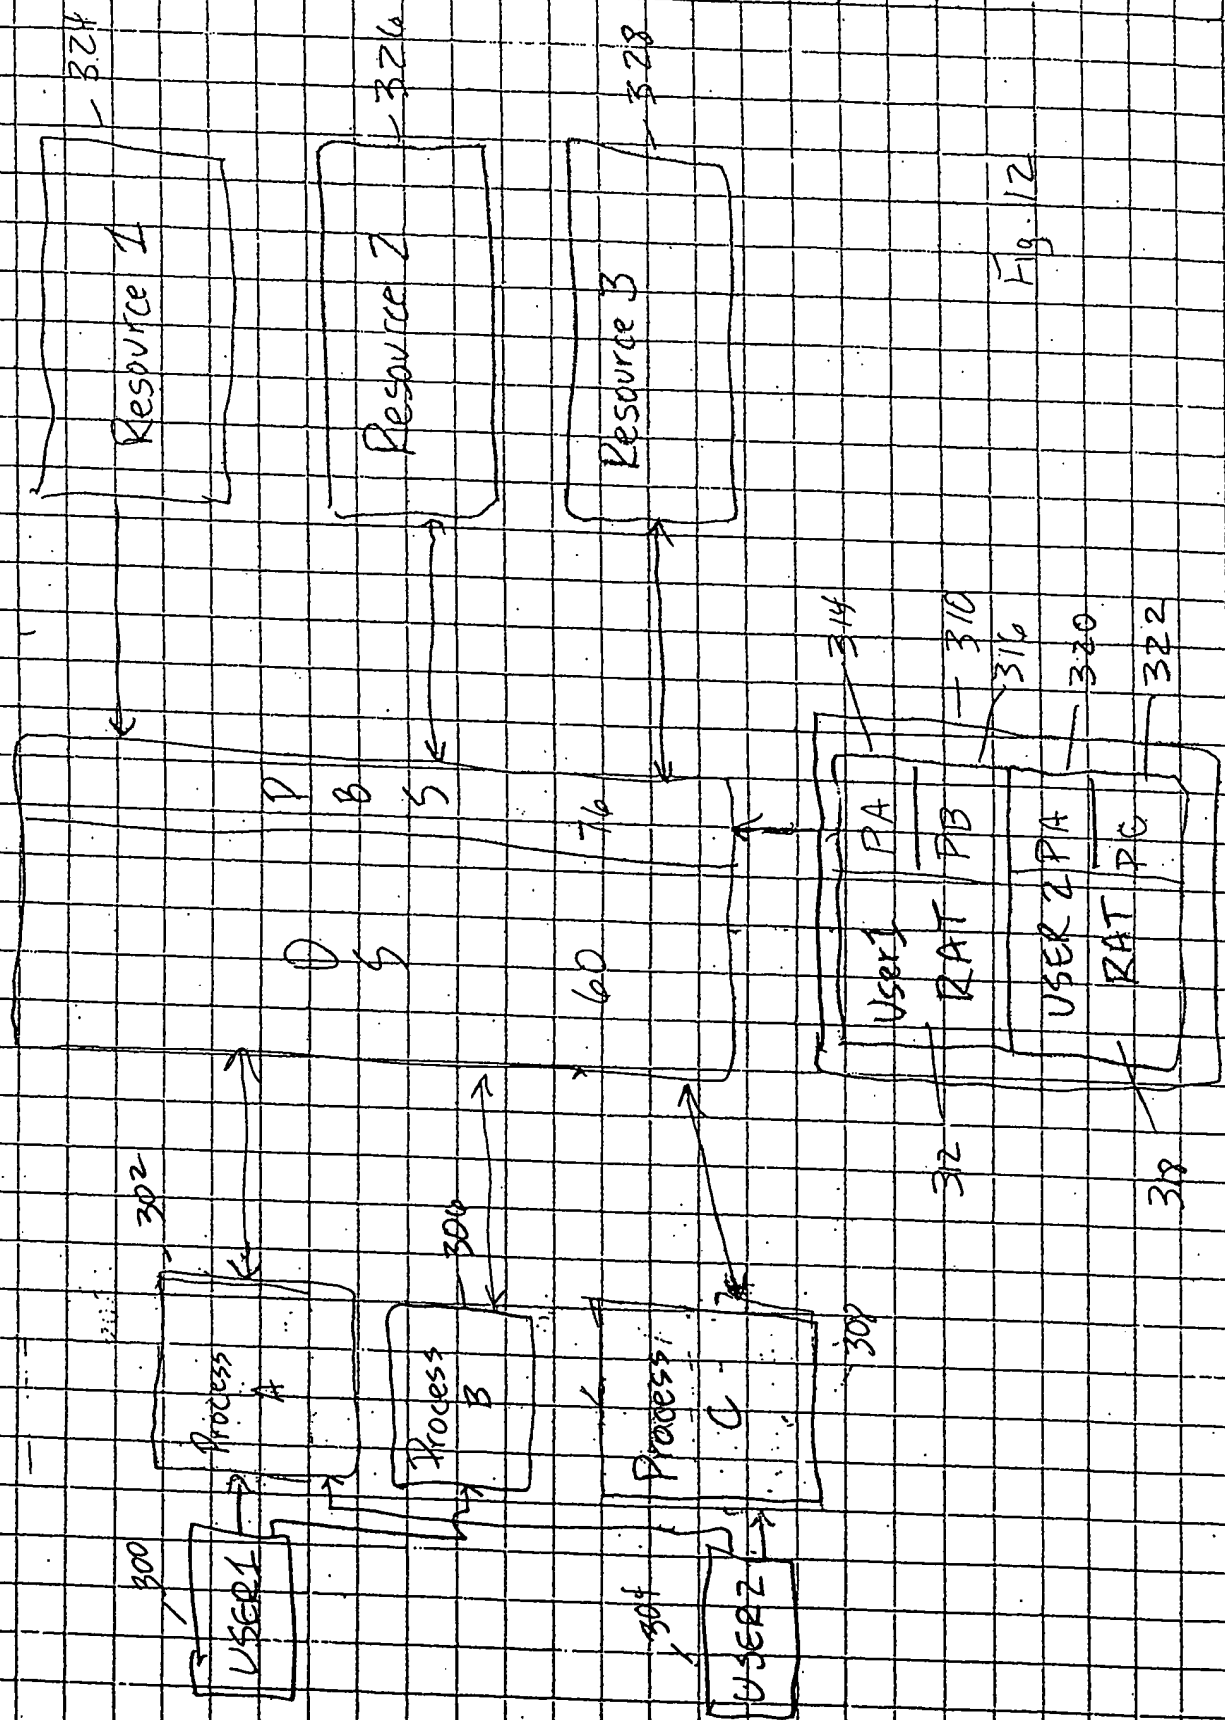 300
USER1
304
USER 2
302
Process
A
306
Process
B
Process
C
308
D
S
60
P
B
S
76
Resource 1
324
Resource 2
326
Resource 3
328
312
User1
RAT
PA
PB
314
310
316
318
USER 2
RAT
PA
PC
320
322
Fig. 12